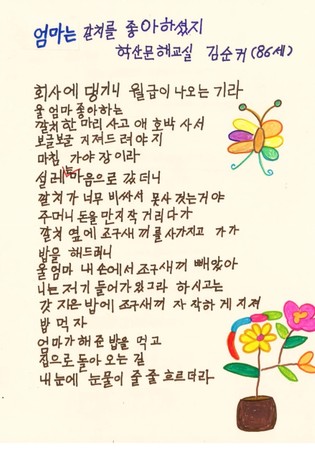 엄마는 갈치를 좋아하셨지
학산문해교실 김순커(86세)
회사에 댕기니 월급이 나오는 기라
울 엄마 좋아하는
깔치한 마리 사고 애 호박 사서
보글보글 지져드려야지
마침 가야 장이라
설레는 마음으로 갔더니
깔치가 너무 비싸서 못사 겠는거야
주머니 돈을 만지작 거리다가
깔치 옆에 조구새끼를사가지고 가가
밥을 해드리니
울엄마 내 손에서 조구새끼 빼앗아
니는 저기 들어가있그라 하시고는
갓 지은 밥에 조구새끼 자작하게 지져
밥 먹자
엄마가 해준 밥을 먹고
집으로 돌아 오는 길
내 눈에 눈물이 줄 줄 흐르더라